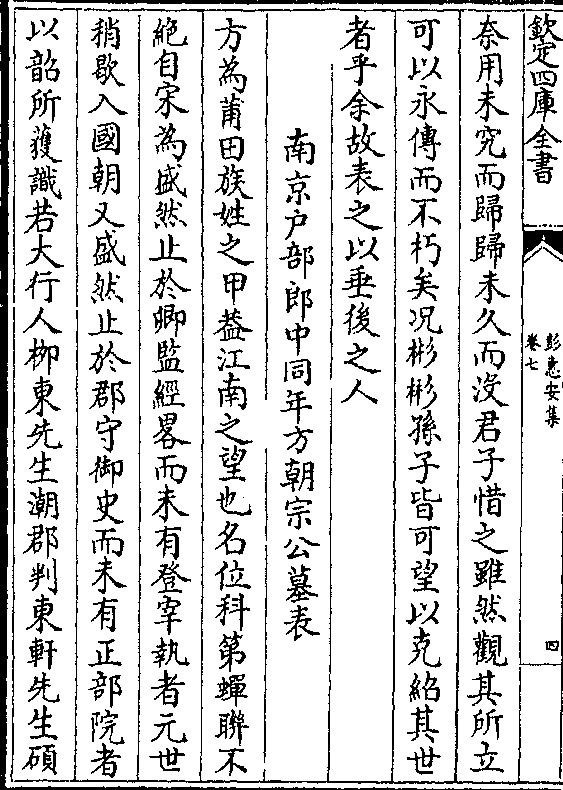 欽定四庫全書
彭惠安集
卷七
四
奈用未究而歸歸未久而沒君子惜之雖然觀其所立
可以永傳而不朽矣况彬彬孫子皆可望以克紹其世
者乎余故表之以垂後之人
南京户部郎中同年方朝宗公墓表
方為莆田族姓之甲葢江南之望也名位科第蟬聯不
絶自宋為盛然止於卿監經畧而未有登宰執者元世
稍歇入國朝又盛然止於郡守御史而未有正部院者
以韶所獲識若大行人栁東先生潮郡判東軒先生碩